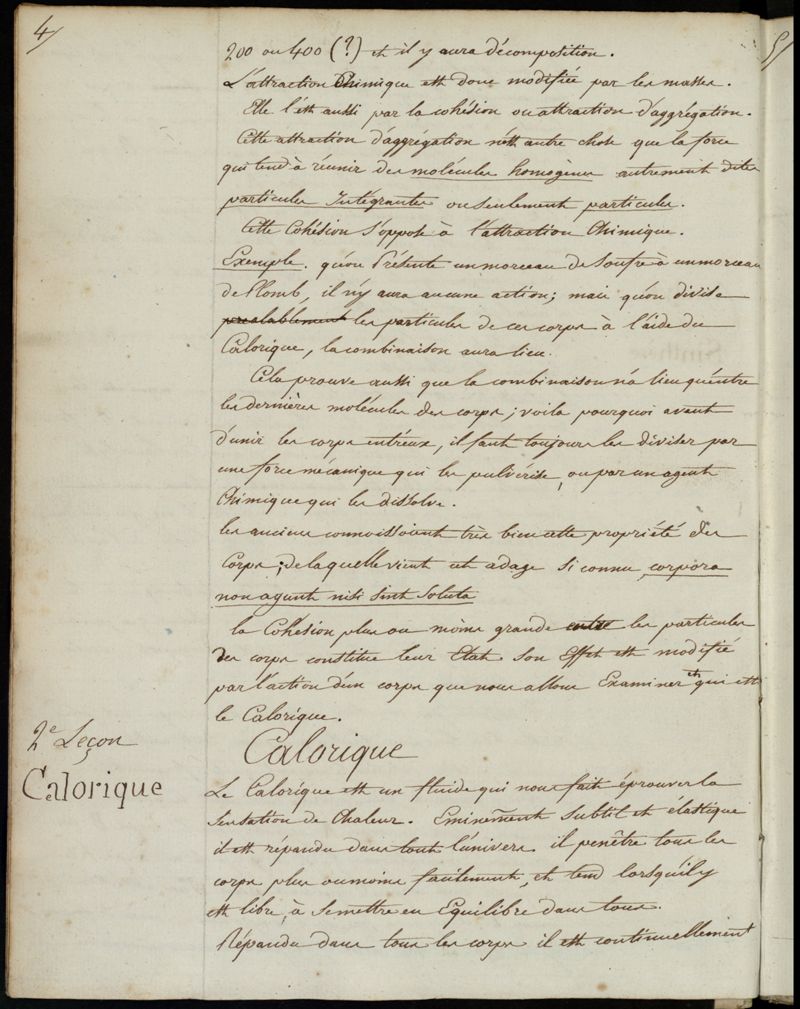 4/
5/
200 ou 400 (?) et il y aura décomposition.
L'attraction Chimique est donc modifiée par les masses.
Elle l'est aussi par la cohésion ou attraction d'aggrégation.
Cette attraction d'aggrégation n'est autre chose que la force
qui tend à réunir des molécules homogènes autrement dites
particules Intégrantes ou seulement particules.
Cette Cohésion s'oppose à l'attraction Chimique.
Exemple. qu'on Présente un morceau de Soufre à un morceau
de Plomb, il n'y aura aucune action; mais qu'on divise
prealablement les particules de ces corps à l'aide du
Calorique, la combinaison aura lieu.
Cela prouve aussi que la combinaison n'a lieu qu'entre
les dernières molécules des corps; voila pourquoi avant
d'unir les corps entr'eux, il faut toujours les diviser par
une force mécanique qui les pulvérise, ou par un agent
Chimique qui les dissolve.
les anciens connoissoient très bien cette propriété des
Corps; de laquelle vient cet adage si connu corpora
non agunt nisi sint soluta
la Cohésion plus ou moins grande entre les particules
des corps constitue leur Etat. Son Effet est modifié
par l'action d'un corps que nous allons Examiner et qui est
le Calorique.
2e Leçon
Calorique
Calorique
Le Calorique est un fluide qui nous fait éprouver la
Sensation de Chaleur. Eminemment subtil et élastique
il est répandu dans tout l'univers il penêtre tous les
corps plus ou moins facilement, et tend lorsqu'il y
est libre, à se mettre en Equilibre dans tous.
Répandu dans tous les corps il est continuellement